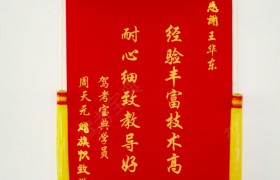 感谢王华东
经验丰富技术高
耐心细致教导好
驾考宝典学员
周天元